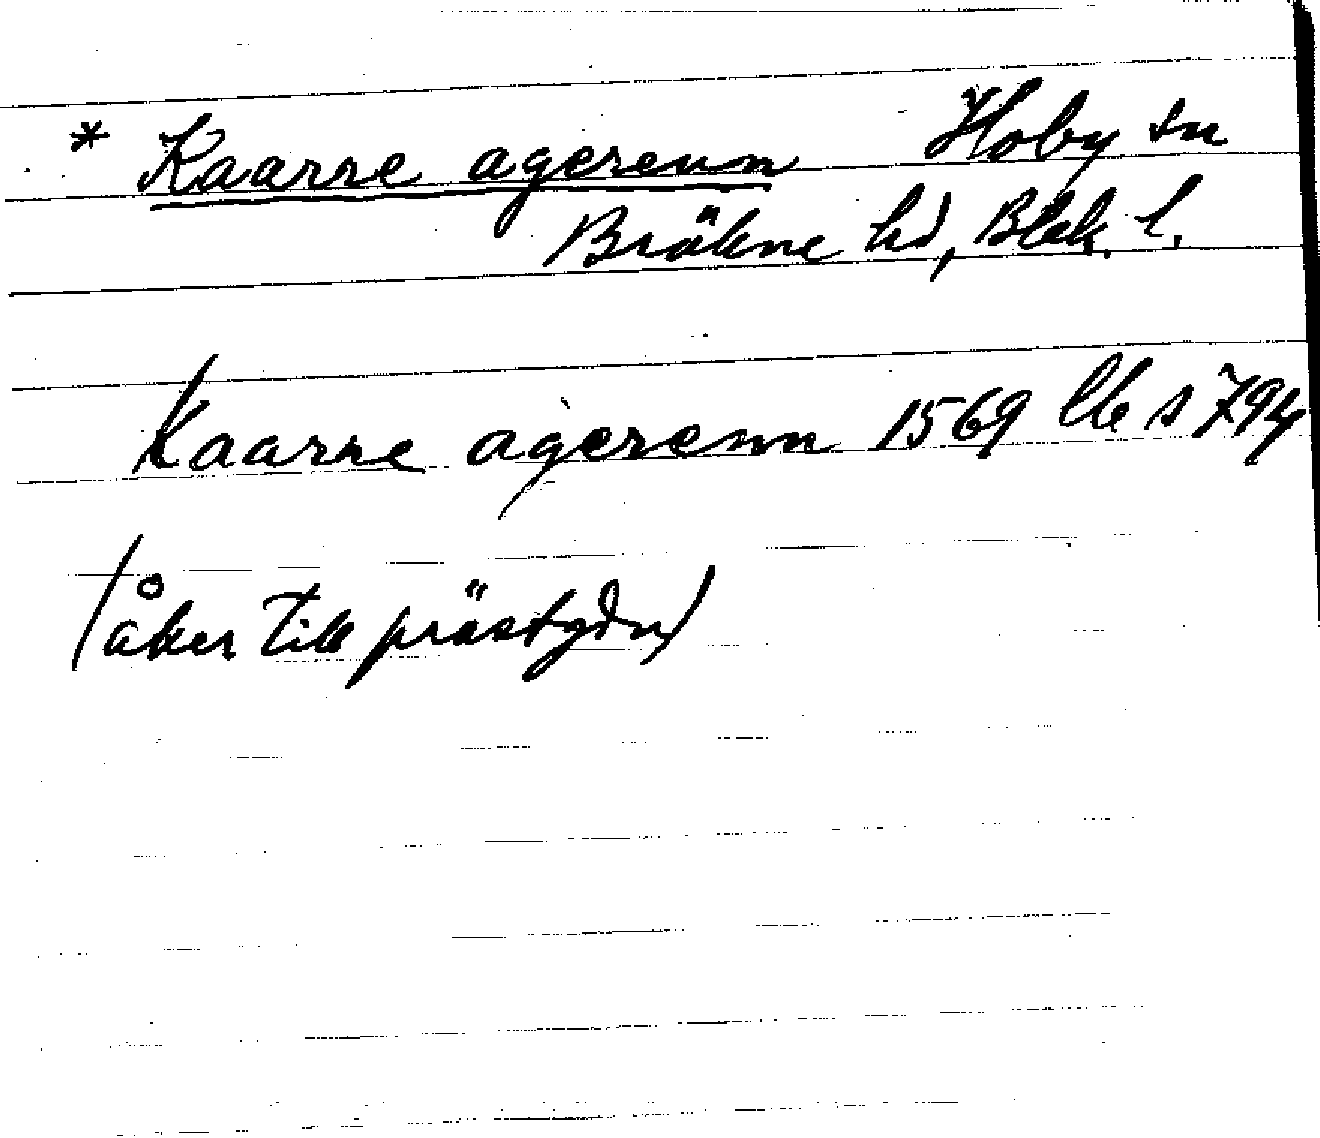 * Kaarre agerenn Hoby sn
Bräkne hd, Blek. l.
Kaarre agerenn 1569 lb s 794
(åker till prästgdn)